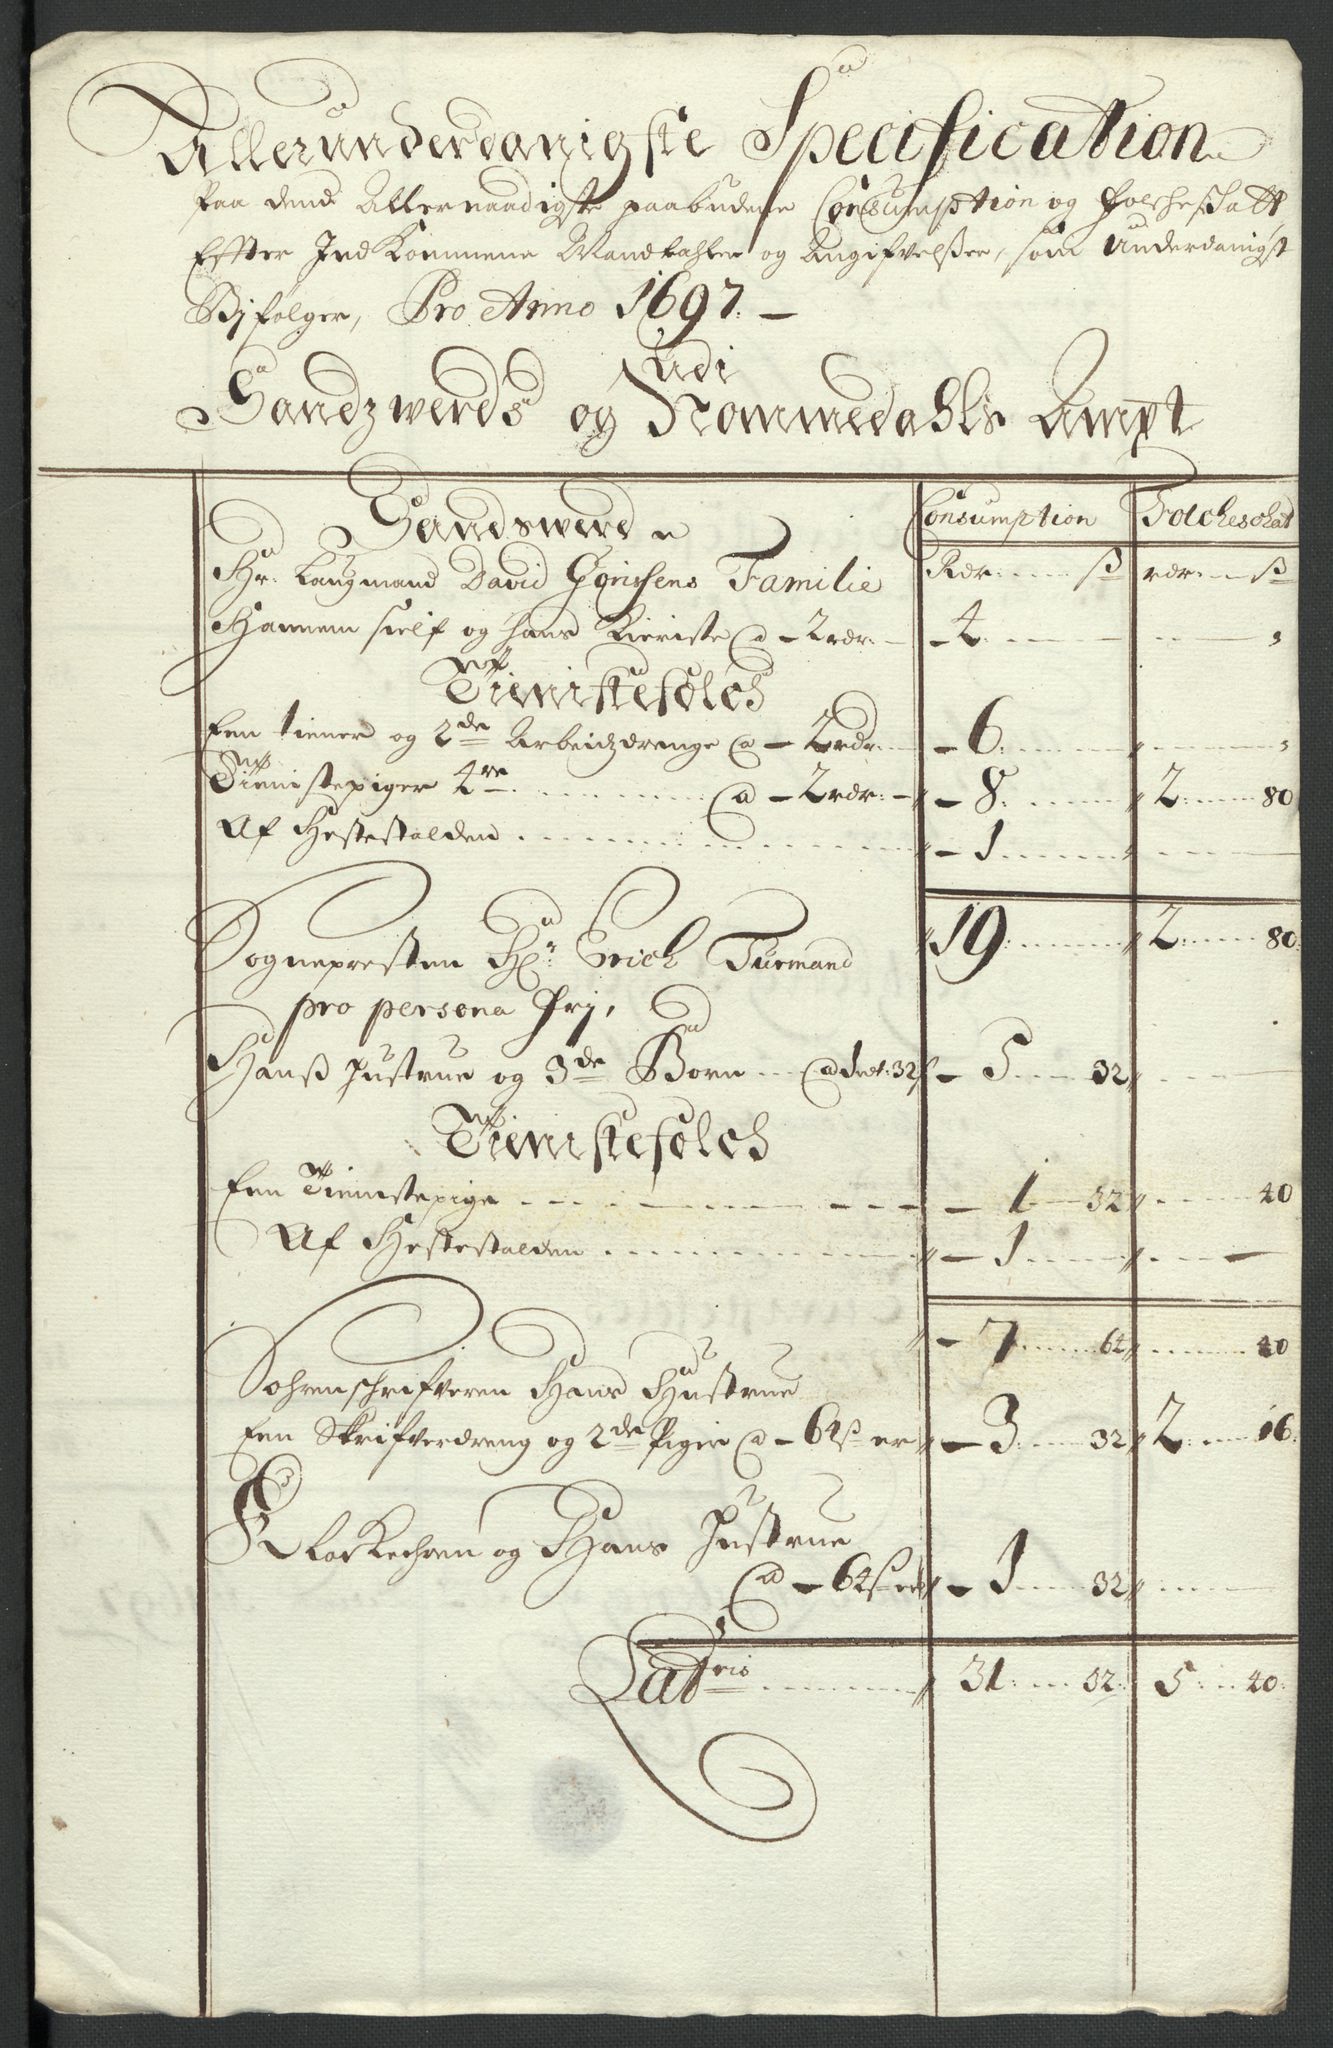 Allerunderdanigste Specification
Paa dend Allernaadigste paabudene Consumption og Folcheskatt,
Effter Ind Kommene Mandtahler og Angifvelßer, som Underdanigst
Bijfølger, Pro Anno 1697. —
Udi
Sandzwerds og Nommedahls Ampt
Sandswerd Consumption Folcheschat
Hr. Laugmand David Familie Rdr ß rdr ß
Hannem sielf og hans Kieriste a 2 rdr. 4
Tienistefolch
Een tiener og 2de Arbeidzdrenge a 2 rdr. 6
Tienistepiger 4re a 2 rdr. 8 2 80
Af Hestestalden 1
19 2 80
Sognepresten Hr. Erich Turmand
pro persona frj,
Hanß Hustrue og 3de Børn a 1 rd. 32 ß 5 32
Tienistefolch
Een Tienistepige 1 32 40
Af Hestestalden 1
7 64 40
Sohrenschrifveren Hans Hustrue
Een Skrifverdreng og 2de Piger a 64 ß er 3 32 2 16
Klockeren og Hans Hustrue
a 64 ß er 1 32
Lateris 31 32 5 40